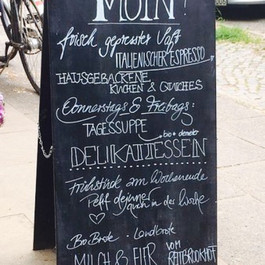 MOIN!
frisch gepresster Saft
ITALIENISCHER ESPRESSO
HAUSGEBACKENE
KUCHEN & QUICHES
Donnerstags & Freitags:
TAGESSUPPE
bio + demeter
DELIKATESSEN
Frühstück am Wochenende
auch in der Woche
Bio Brote - Landbrote
MILCH & EIER VOM